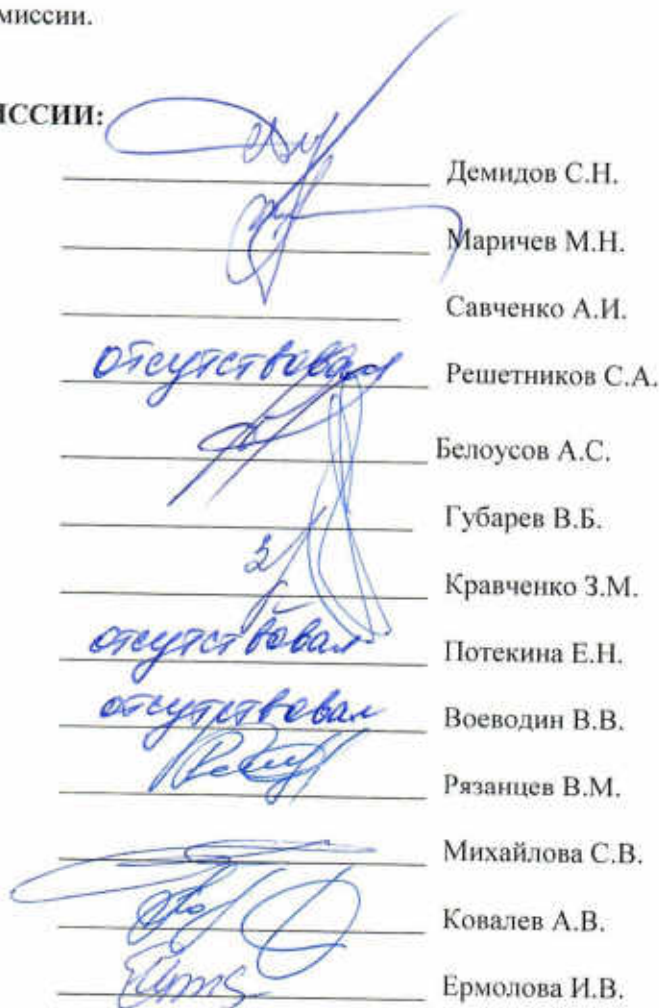 миссии.
ИССИИ:
Демидов С.Н.
Маричев М.Н.
Савченко А.И.
отсутствовал Решетников С.А.
Белоусов А.С.
Губарев В.Б.
Кравченко З.М.
отсутствовал Потекина Е.Н.
отсутствовал Воеводин В.В.
Рязанцев В.М.
Михайлова С.В.
Ковалев А.В.
Ермолова И.В.